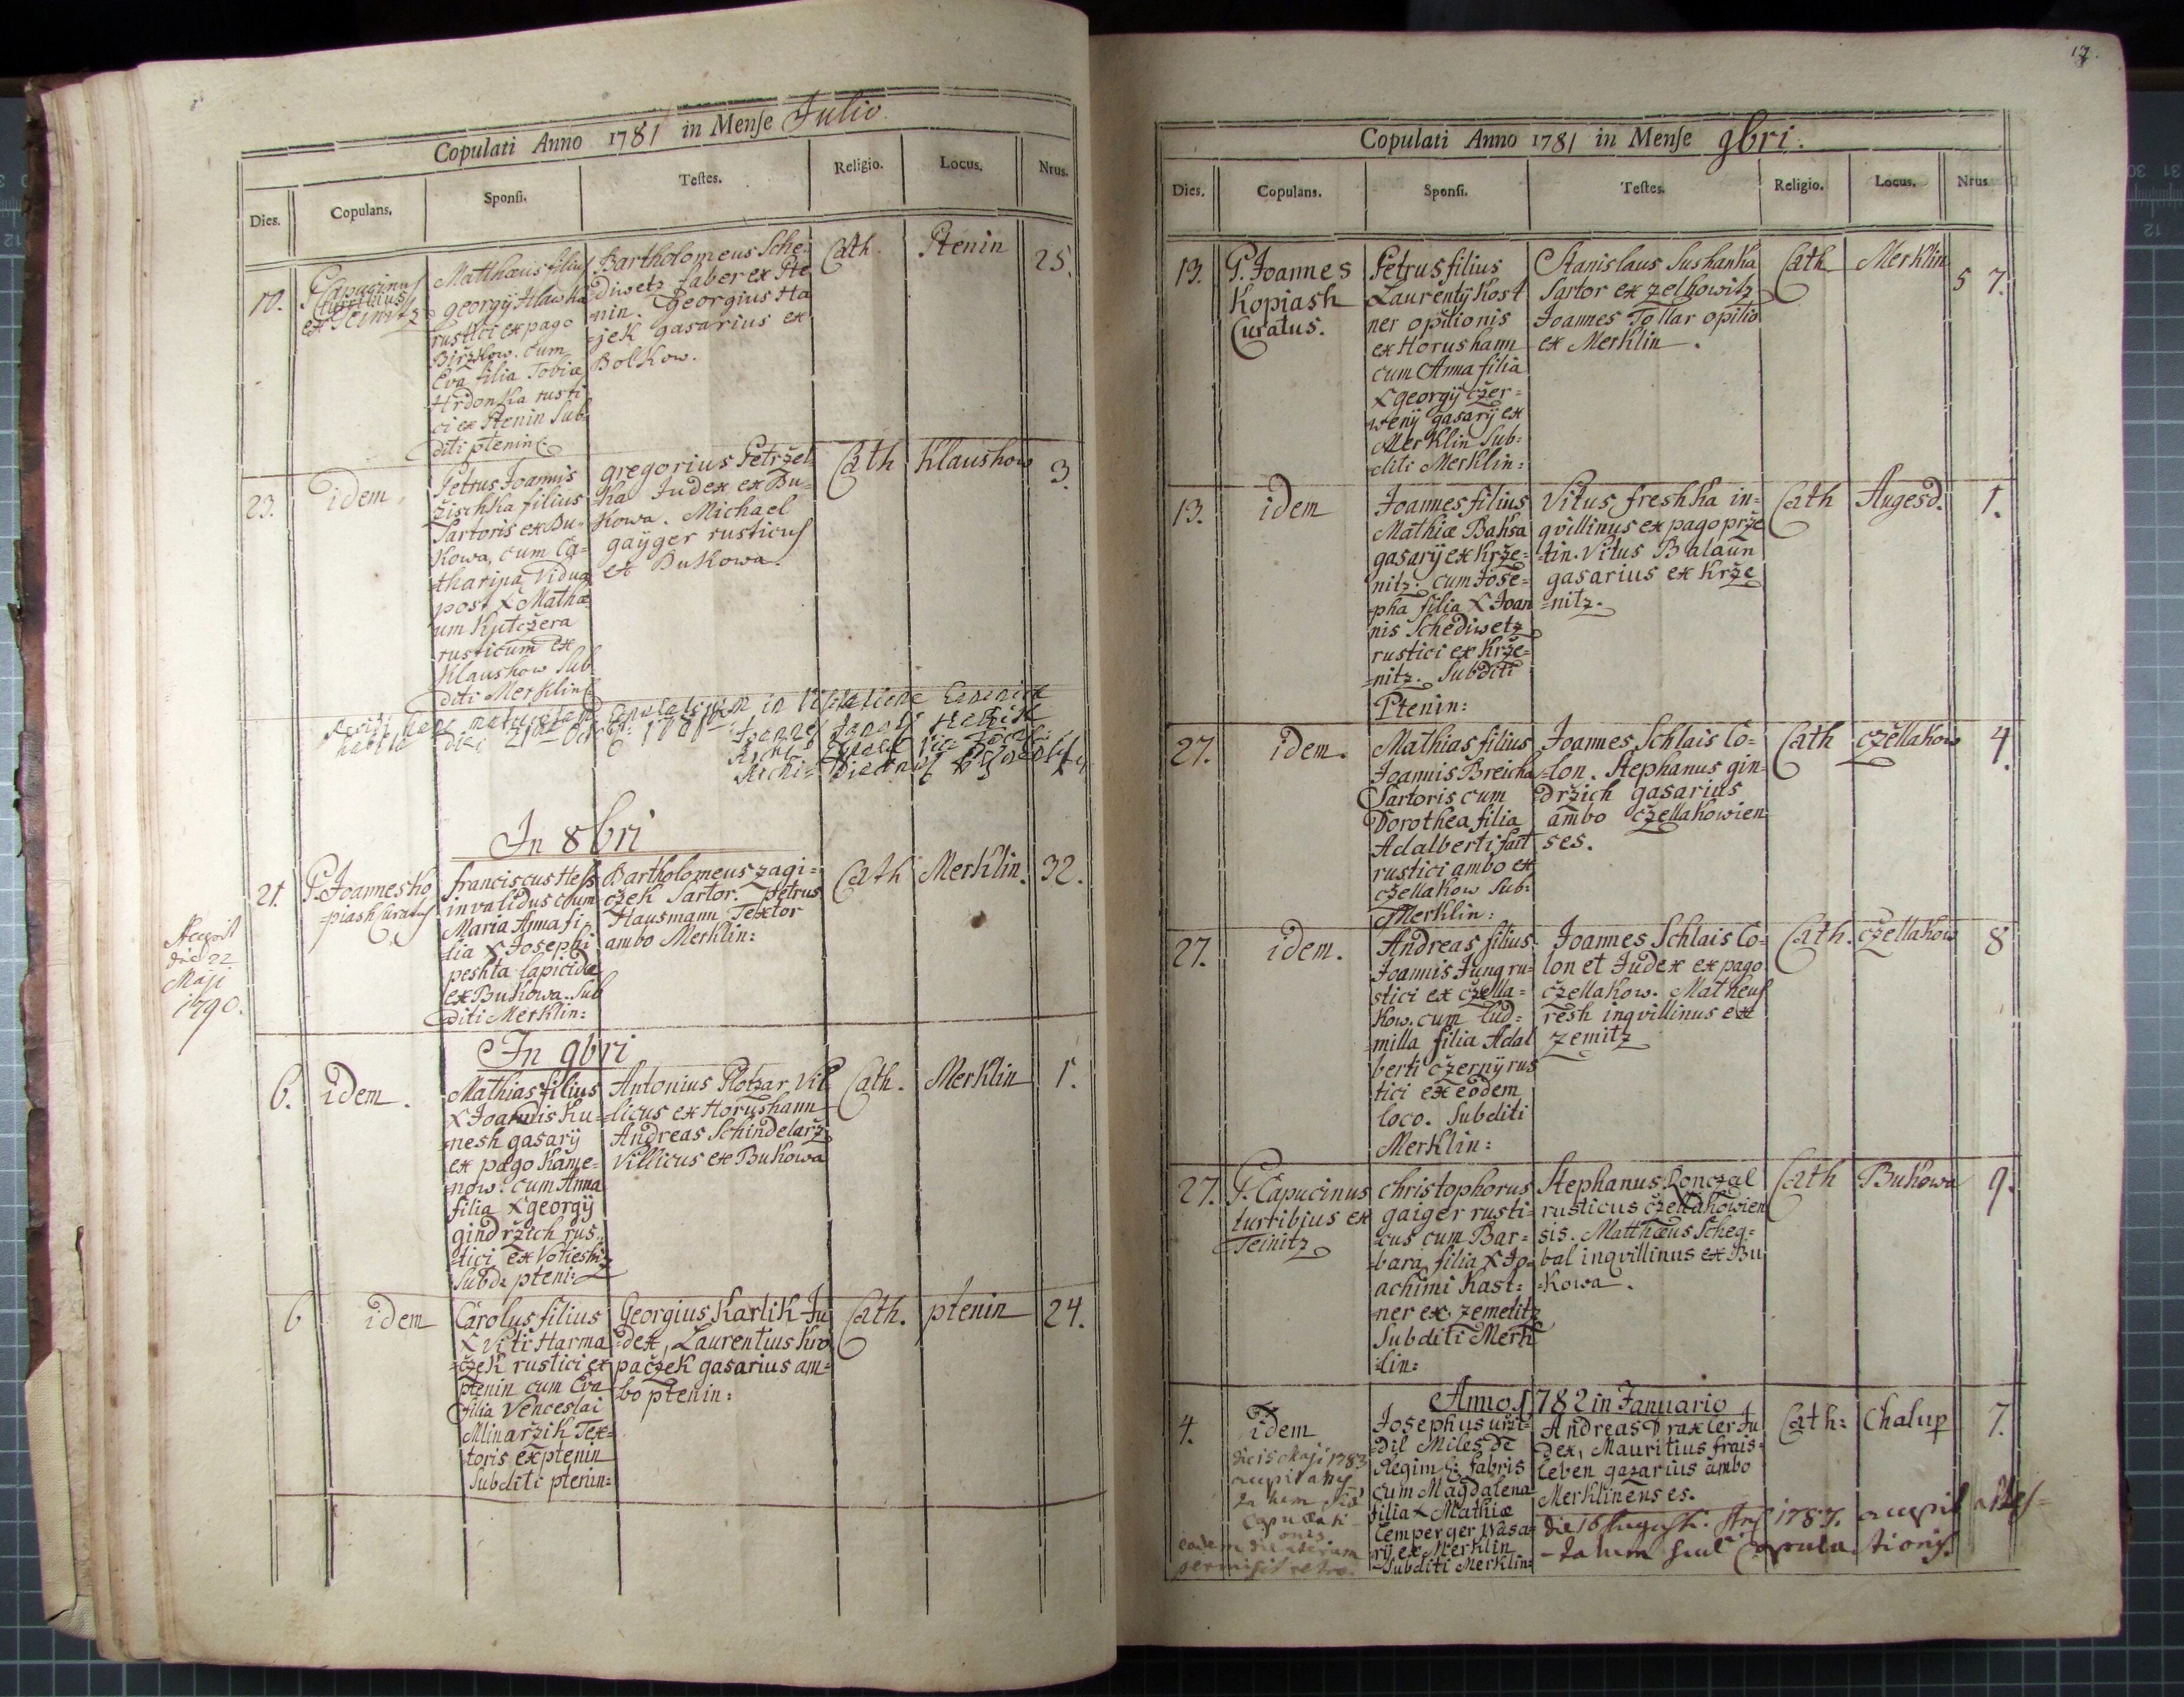 Copulati Anno 1781 in Mense Julio
Dies. Copulans. Sponsi. Testes. Religio. Locus. Nrus.
10. P. Capucinus
ex Teinitz
Matthæus filius
georgÿ Hlawka
rustici ex pago
Biržkow. cum
Eva filia Tobiæ
Hrdonka rusti
ci ex Ptenin Sub
diti ptenin:
Bartholomeus Sche-
diwetz faber ex Pte
nin. Georgius Ha
-jek gasarius ex
Bolkow.
Cath. Ptenin 25.
23. idem
Petrus Joannis
žischka filius
Sartoris ex Bu-
kowa, cum Ca-
tharina Vidua
post X Mathæ
um Kutczera
rusticum ex
Klaushow Sub
diti Merklin:
gregorius Petržel
ka Judex ex Bu-
kowa. Michael
gaÿger rusticus
ex Bukowa.
Cath Klaushow 3.
In 8bri
21. P. Joannes Ko
-piash Curatus
franciscus Hess
invalidus cum
Maria Anna fi-
lia X Josephi
peshta lapicidæ
ex Bukowa. Sub
diti Merklin:
Bartholomeus zagi=
čzek Sartor. Petrus
Hausmann Textor
ambo Merklin:
Cath Merklin. 32.
die 22
Maji
1790.
In 9bri
6. idem.
Mathias filius
X Joannis Ku-
nesh gasarÿ
ex pago Kame=
now. cum Anna
filia X georgÿ
gindržich rus-
tici ex
Subd: pteni:
Antonius Plotzar Vil
-licus ex Horushann
Andreas Schindelarž
Villicus ex Bukowa
Cath. Merklin 1.
6 idem
Carolus filius
X Viti Harma
=čzek rustici ex
ptenin cum Eva
filia Venceslai
Mlinaržik Tex=
toris ex ptenin
Subditi ptenin:
Georgius Karlik Ju
dex, Laurentius Kro
pačzek gasarius am=
bo ptenin:
Cath. ptenin 24.
17.
Copulati Anno 1781 in Mense 9bri.
Dies. Copulans. Sponsi. Testes. Religio. Locus. Nrus
13. P. Joannes
Kopiash
Curatus.
Petrus filius
Laurentÿ Kost
ner opilionis
ex Horushann
cum Anna filia
X georgÿ čzer=
wenÿ gasarÿ ex
Merklin Sub:
diti Merklin:
Stanislaus Sushanka
Sartor ex zelhowitz
Joannes Tollar opilio
ex Merklin.
Cath Merklin 57.
13. idem
Joannes filius
Mathiæ Baksa
gasarÿ ex Krže=
nitz. cum Jose=
pha filia X Joan
nis Schediwetz
rustici ex Krže=
=nitz. Subditi
Ptenin:
Vitus freshka in=
qvillinus ex pago prže
=tin. Vitus Balaun
gasarius ex Krže
=nitz.
Cath Augesd. 1.
27. idem.
Mathias filius
Joannis Breicha
Sartoris cum
Dorothea filia
Adalberti fait
rustici ambo ex
čzellakow Sub:
Merklin:
Joannes Schlais Co-
=lon. Stephanus gin
držich gasarius
ambo čzellakowien
ses.
Cath čzellakow 4.
27. idem.
Andreas filius
Joannis Jung ru-
stici ex čzella=
kow. cum Lud=
milla filia Adal
berti čzernÿ rus
tici ex eodem
loco. Subditi
Merklin:
Joannes Schlais Co=
lon et Judex ex pago
čzellakow. Matheus
resh inqvillinus ex
zemitz
Cath. čzellakow 8
27. P. Capucinus
turribius ex
Teinitz
christophorus
gaiger rusti=
cus cum Bar=
bara filia X Jo-
achimi Kast:
=ner ex zemetitz
Subditi Merk
=lin:
Stephanus Ronczal
rusticus čzellakowien
sis. Matthæus Scheg=
bal inqvillinus ex Bu
=kowa.
Cath Bukowa 9.
Anno 1782 in Januario
4. Idem
die 15 Maji 1783
Josephus urži=
dil Miles de
Regim: fabris
cum Magdalena
filia X Mathiæ
Lemperger
ex Merklin
Subditi Merklin:
Andreas Draxler Ju
dex, Mauritius frais=
leben gasarius ambo
Merklinenses.
Cath: Chalup 7.
die 16 August: 1787. accepit attes=
-tatum copulationis.